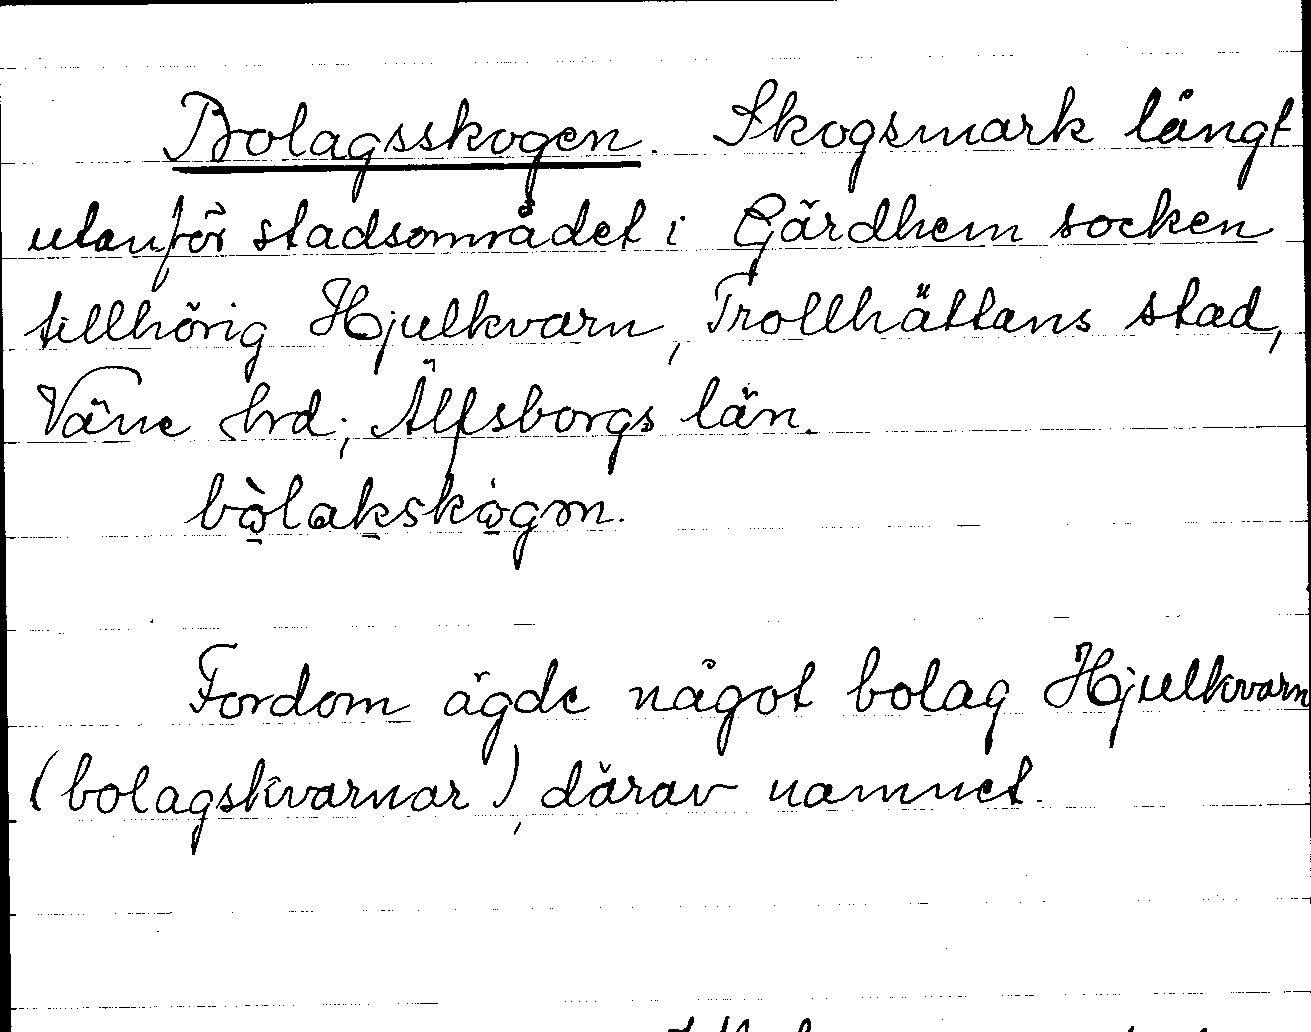 Bolagsskogen. Skogsmark långt
utanför stadsområdet i Gärdhem socken
tillhörig Hjulkvarn, Trollhättans stad,
Väne hrd; Älfsborgs län.
bòlakskògən.
Fordom ägde något bolag Hjulkvarn
(bolagskvarnar), därav namnet.